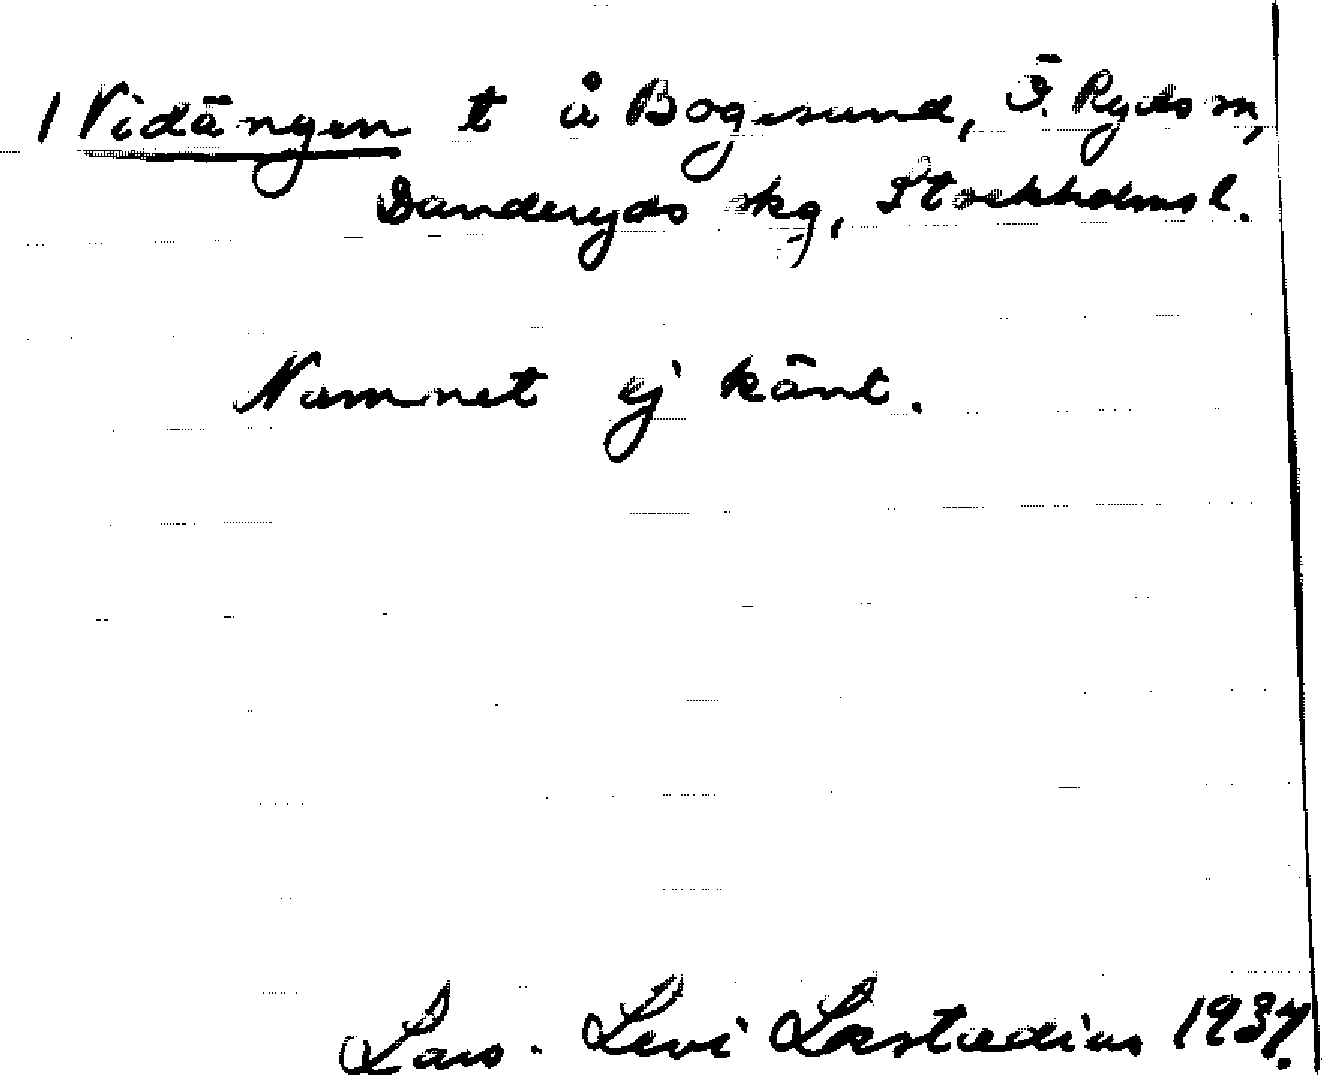 1 Vidängen t å Bogesund, Ö. Ryds sn,
Danderyds skg, Stockholms l.
Namnet ej känt.
Lars-Levi Læstadius 1937.